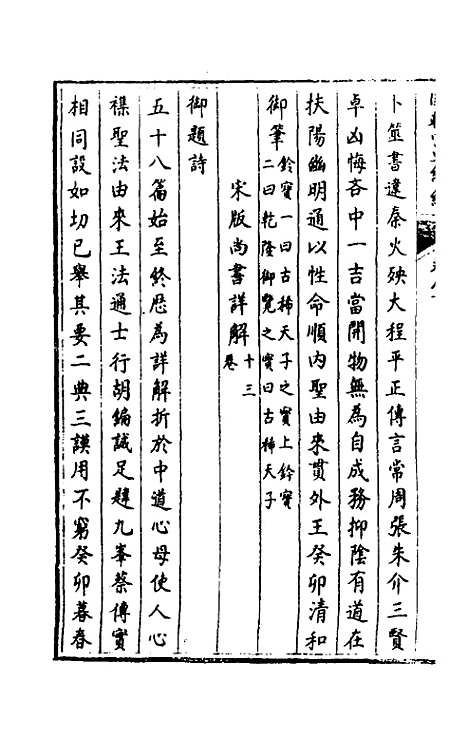 卜筮書違秦火殃大程平正傳言常周張朱介三賢
卓凶悔吝中一吉當開物無為自成務抑陰有道在
扶陽幽明通以性命順內聖由來貫外王癸卯清和
御筆鈐寶一曰古稀天子之寶上鈐寶
二曰乾隆御覽之寶曰古稀天子
宋版尚書詳解十三
卷
御題詩
五十八篇始至終歷為詳解折於中道心毋使人心
襍聖法由來王法通士行胡編誠足肄九峯蔡傳實
相同設如切己舉其要二典三謨用不窮癸卯暮春